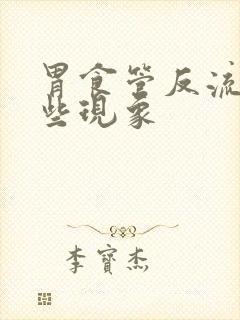 胃食管反流
些現象
李寶杰